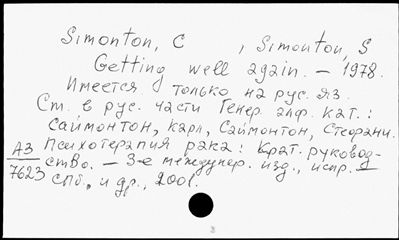 Simonton, C , Simonton, S
Getting well again. – 1978.
Имеется только на рус. яз.
См. в рус. части Генер. алф. кат.:
Саймонтон, Карл, Саймонтон, Стефани.
Психотерапия рака: Крат. руковод-
ство. – 3-е междунар. изд., испр.
СПб., и др., 2001.
А3
7623